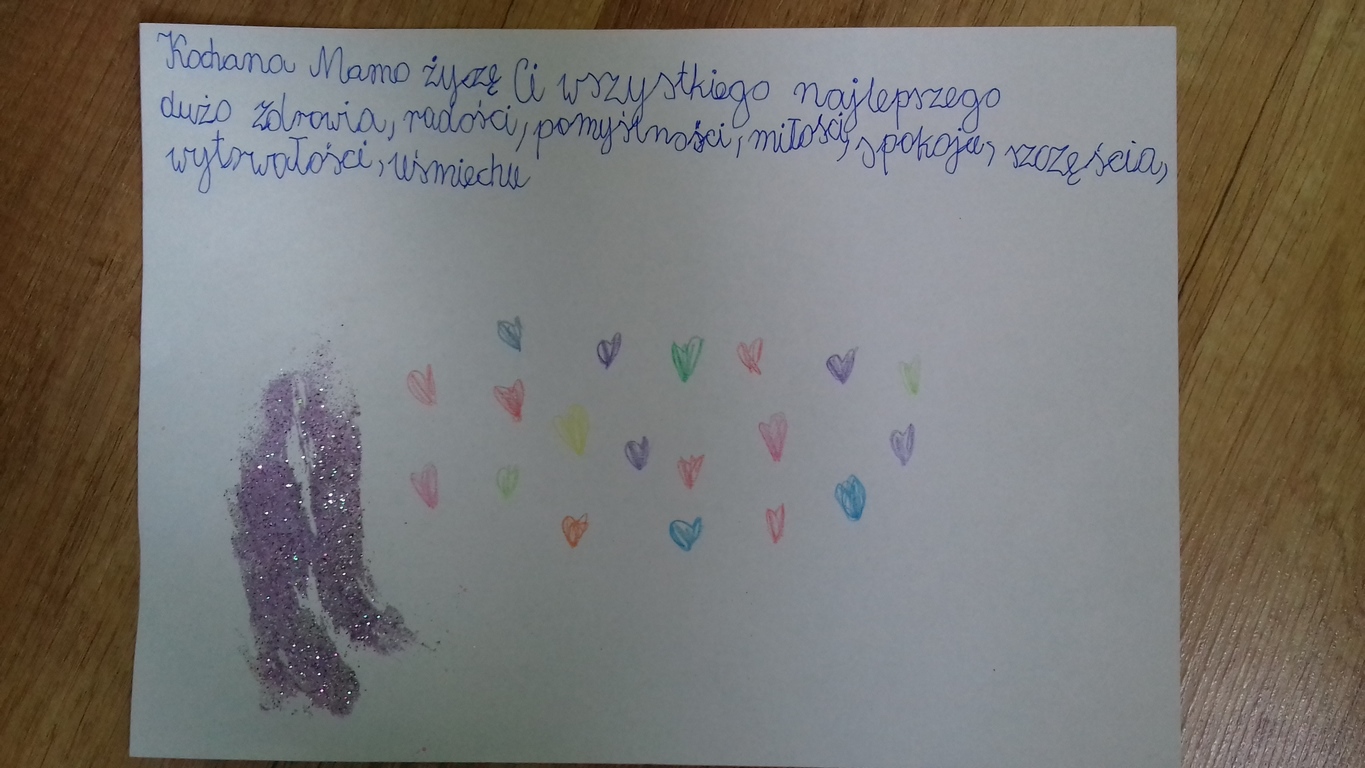 Kochana Mamo życzę Ci wszystkiego najlepszego
dużo zdrowia, radości, pomyślności, miłości, spokoja, szczęścia,
wytrwałości, uśmiechu